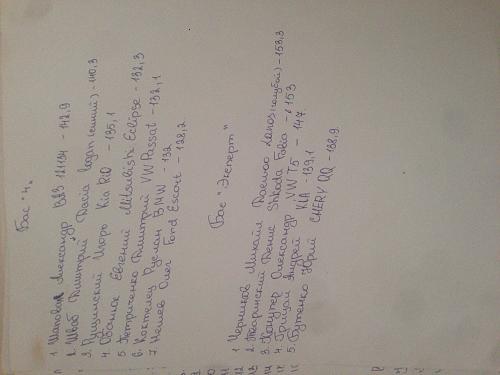 Бас "4"
1. Шаповал Александр ВАЗ 21134 - 142,9
2. Швов Дмитрий Dacia Logan (синий) - 140,3
3. Пушинский Игорь Kia Rio - 135,1
4. Евгений Mitsubishi Eclipse - 132,3
5. Петриченко Дмитрий VW Passat - 132,1
6. Коктелец Руслан BMW - 132
7. Нешев Олег Ford Escort - 128,2
Бас "Эксперт"
1. Черников Михаил Daewoo Lanos (голубой) - 153,3
2. Тваринский Денис Shkoda Fabia - 153
3. Александр VW T5 - 147
4. Грицай Андрей KIA - 139,1
5. Бутенко Юрий CHERY QQ - 138,9